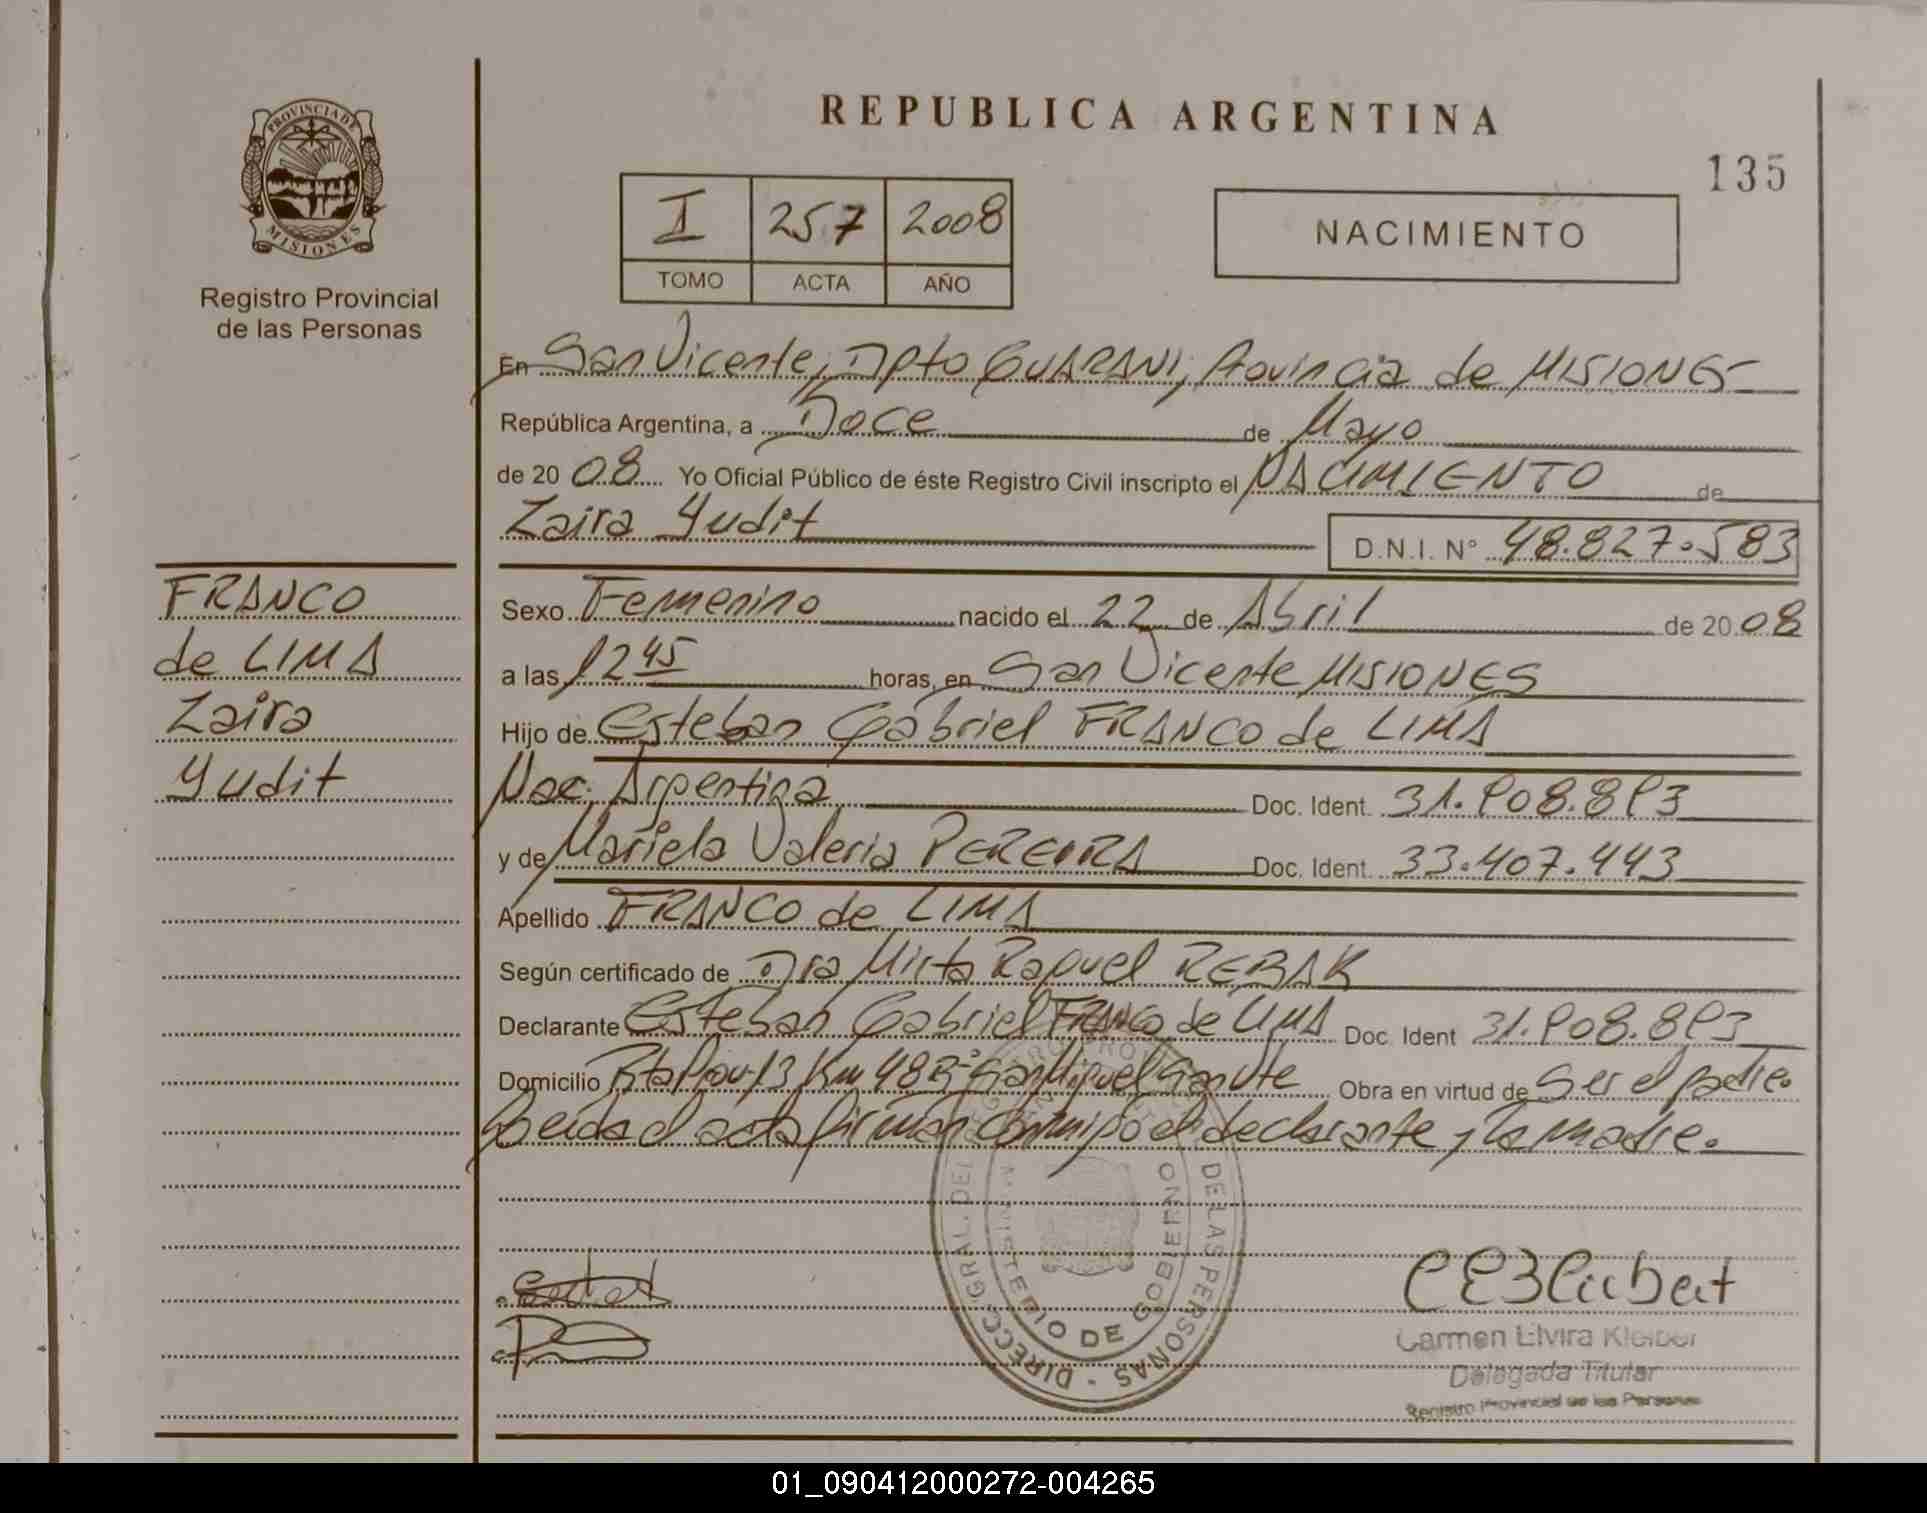 PROVINCIA DE
MISIONES
Registro Provincial
de las Personas
REPUBLICA ARGENTINA
135
I 257 2008
TOMO ACTA AÑO
NACIMIENTO
En San Vicente, Dpto GUARANI, Provincia de MISIONES
República Argentina, a Doce de Mayo
de 20 08 Yo Oficial Público de éste Registro Civil inscripto el NACIMIENTO de
Zaira Yudit D.N.I. N° 48.827.583
FRANCO
de LIMA
Zaira
Yudit
Sexo Femenino nacido el 22 de Abril de 20 08
a las 12 45 horas, en San Vicente MISIONES
Hijo de Esteban Gabriel FRANCO de LIMA
Nac. Argentina Doc. Ident. 31.908.893
y de Mariela Valeria PEREIRA Doc. Ident. 33.407.443
Apellido FRANCO de LIMA
Según certificado de Dra Mirta Raquel REBAK
Declarante Esteban Gabriel FRANCO de LIMA Doc. Ident 31.908.893
Domicilio Rta Prov 13 Km 48 B° San Miguel San Vte Obra en virtud de Ser el padre.
Leida el acta firman conmigo el declarante y la madre.
DIRECC. GRAL. DEL REGISTRO PROVINCIAL DE LAS PERSONAS -
MINISTERIO DE GOBIERNO
Carmen Elvira Kleiber
Delegada Titular
Registro Provincial de las Personas
01_090412000272-004265